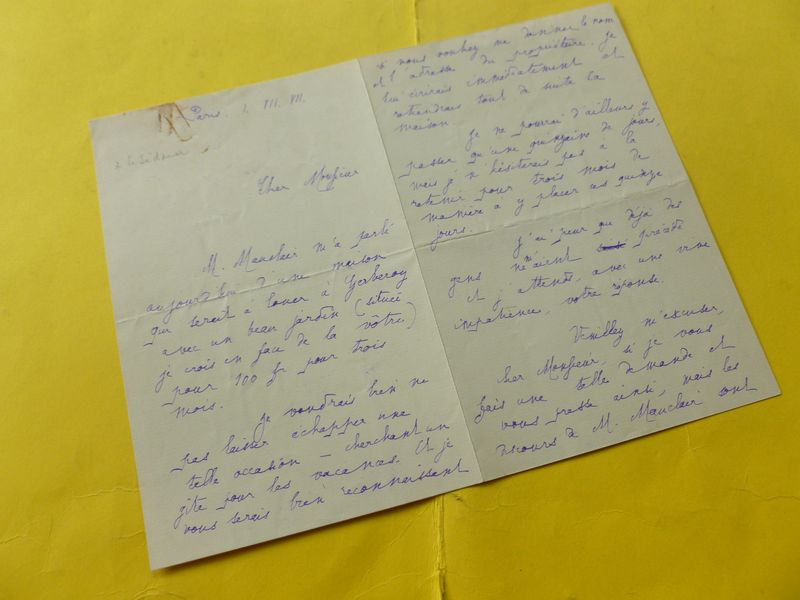 Paris. 1. VII. VII.
Le Sidaner
Cher Monsieur
M. Mauclair m'a parlé
aujourd'hui d'une maison
qui serait à louer à Gerberoy
avec un beau jardin (située
je crois en face de la vôtre)
pour 100 fr pour trois
mois.
Je voudrais bien ne
pas laisser échapper une
telle occasion – cherchant un
gîte pour les vacances. Et je
vous serais bien reconnaissant
si vous vouliez me donner le nom
et l'adresse du propriétaire. Je
lui écrirais immédiatement et
retiendrais tout de suite la
maison.
Je ne pourrai d'ailleurs y
passer qu'une quinzaine de jours,
mais je n'hésiterais pas à la
retenir pour trois mois de
manière à y placer ces quinze
jours.
J'ai peur que déjà des
gens m'aient précédé
et j'attends, avec une vive
impatience, votre réponse.
Veuillez m'excuser,
cher Monsieur, si je vous
fais une telle demande et
vous presse ainsi, mais les
discours de M. Mauclair sont